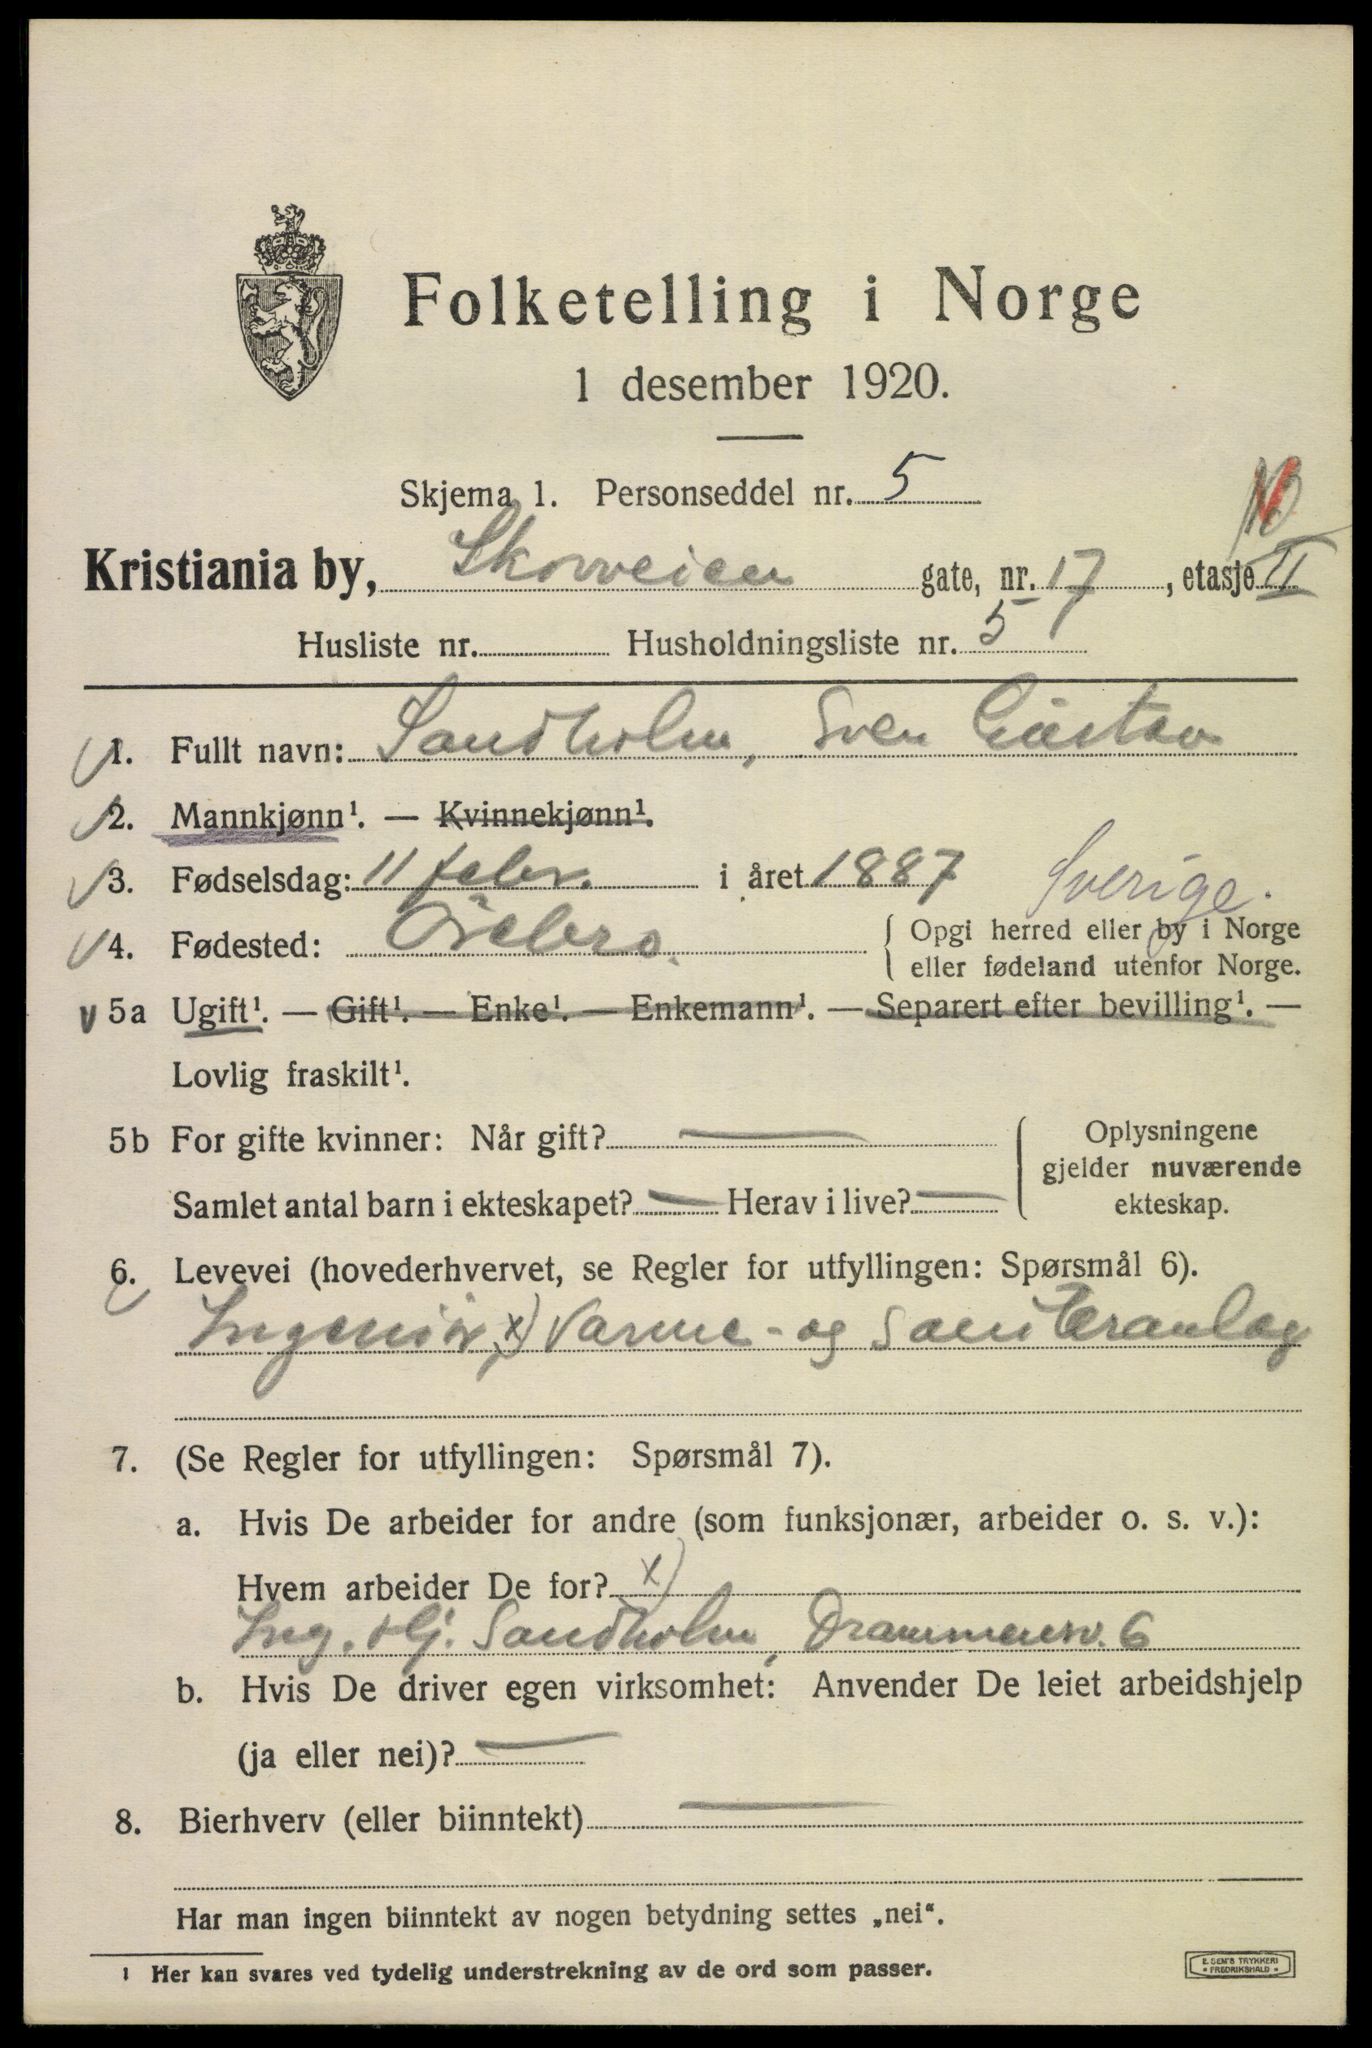 Folketelling i Norge
1 desember 1920.
Skjema 1. Personseddel nr. 5
Kristiania by, Skovveien gate, nr. 17, etasje II
Husliste nr. Husholdningsliste nr. 5
1. Fullt navn: Sandholm, Sven Gustav
2. Mannkjønn¹. — Kvinnekjønn¹.
3. Fødselsdag: 11 febr. i året 1887 Sverige.
4. Fødested: Örebro. Opgi herred eller by i Norge
eller fødeland utenfor Norge.
5a Ugift¹. — Gift¹. — Enke¹. — Enkemann¹. — Separert efter bevilling¹. —
Lovlig fraskilt¹.
5b For gifte kvinner: Når gift? — Oplysningene
gjelder nuværende
Samlet antal barn i ekteskapet? — Herav i live? —
ekteskap.
6. Levevei (hovederhvervet, se Regler for utfyllingen: Spørsmål 6).
Ingeniör, x) Varme- og Saniteranlæg
7. (Se Regler for utfyllingen: Spørsmål 7).
a. Hvis De arbeider for andre (som funksjonær, arbeider o. s. v.):
Hvem arbeider De for? x)
Ing. Hj. Sandholm, Drammensv. 6
b. Hvis De driver egen virksomhet: Anvender De leiet arbeidshjelp
(ja eller nei)? —
8. Bierhverv (eller biinntekt) —
Har man ingen biinntekt av nogen betydning settes „nei“.
¹ Her kan svares ved tydelig understrekning av de ord som passer.
E. SEM'S TRYKKERI
* FREDRIKSHALD *